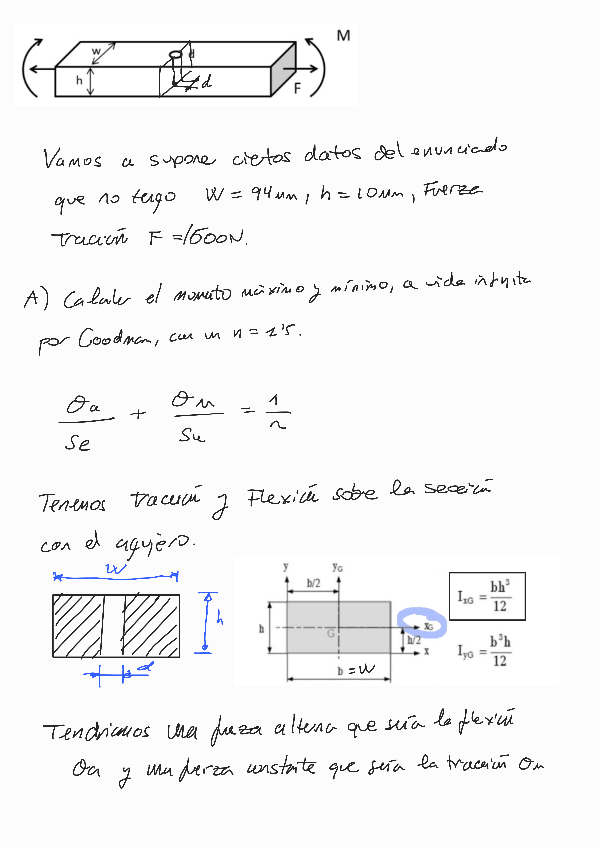 M
w
d
h
d
F
Vamos a supone ciertos datos del enunciado
que no tengo W = 94mm, h = 10mm, Fuerza
tracción F = 1600N.
A) Calcular el momento máximo y mínimo, a vida infinita
por Goodman, con un n = 1'5.
σa/Se + σm/Su = 1/n
Tenemos tracción y Flexión sobre la sección
con el agujero.
w
h
d
y yG
b/2
h G xG
h/2
x
b = W
IxG = bh³/12
IyG = b³h/12
Tendriamos una fuerza alterna que seria la flexión
σa y una fuerza constante que seria la tracción σm